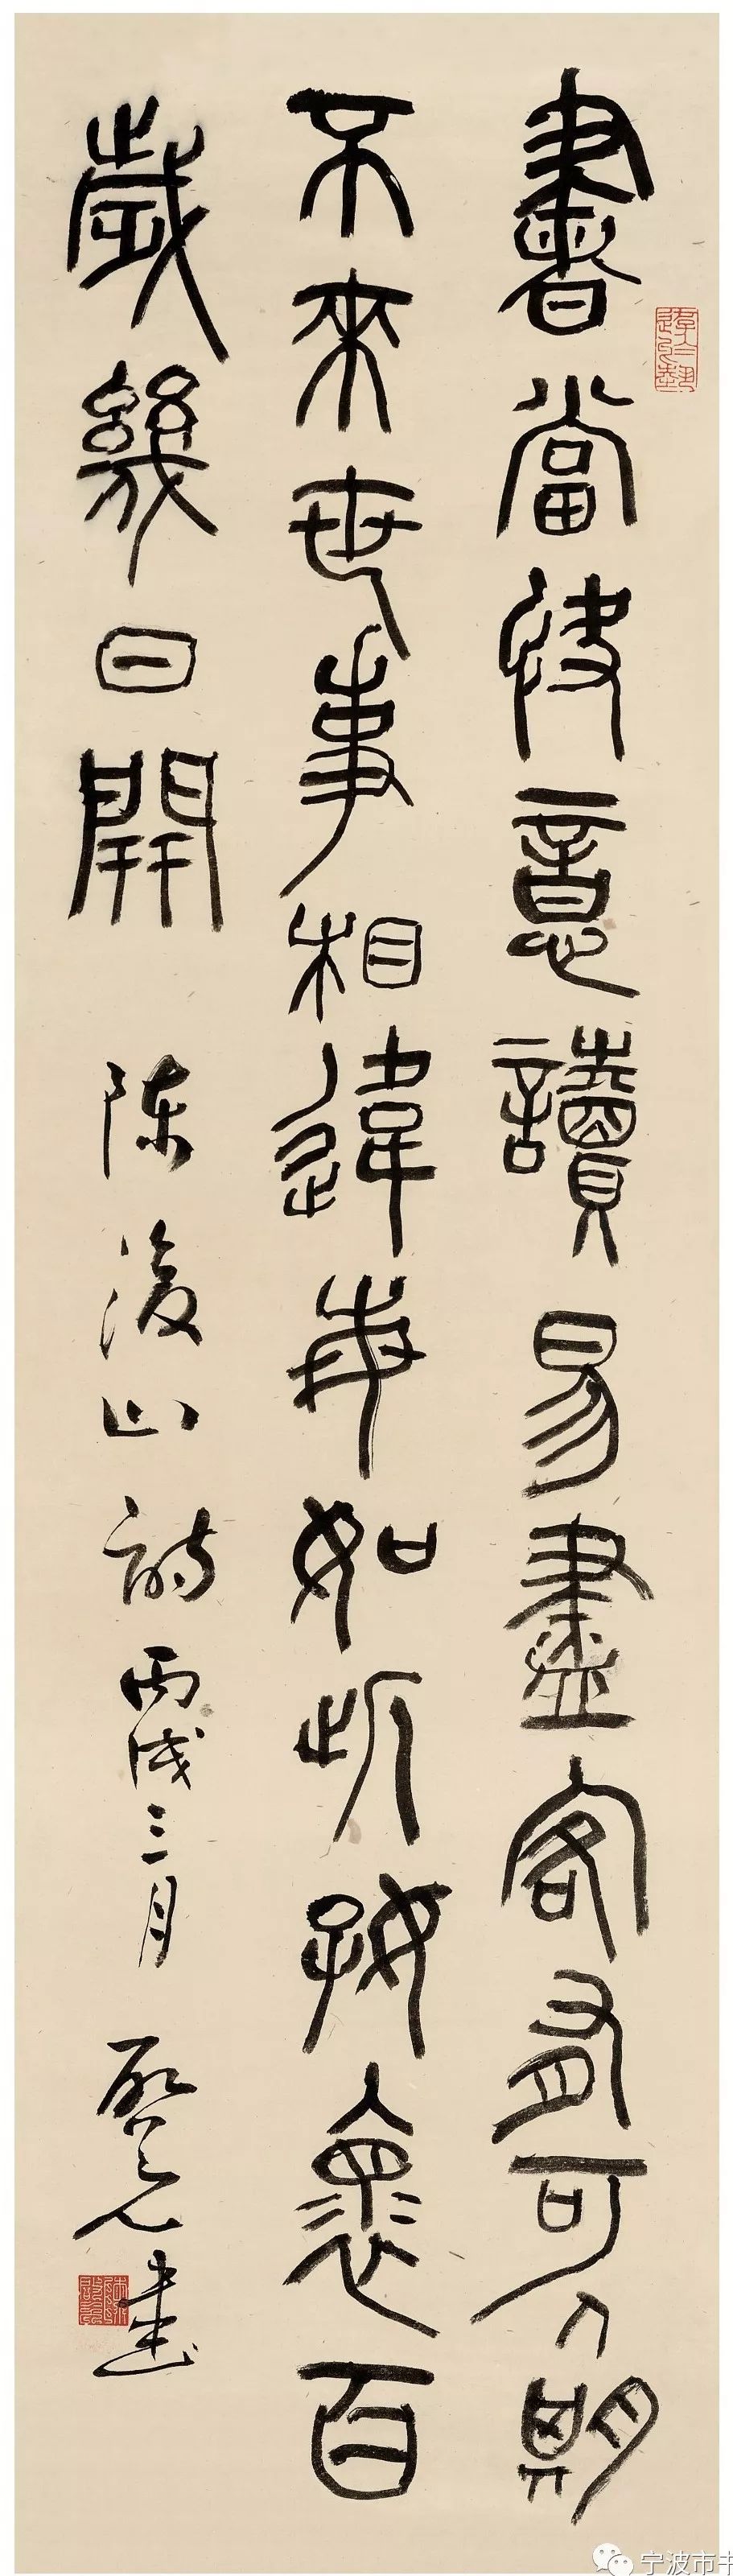 書當快意讀易盡客有可人期
不來世事相違每如此好懷百
歲幾日開
陳後山詩丙戌三月啓元書
宁波市书